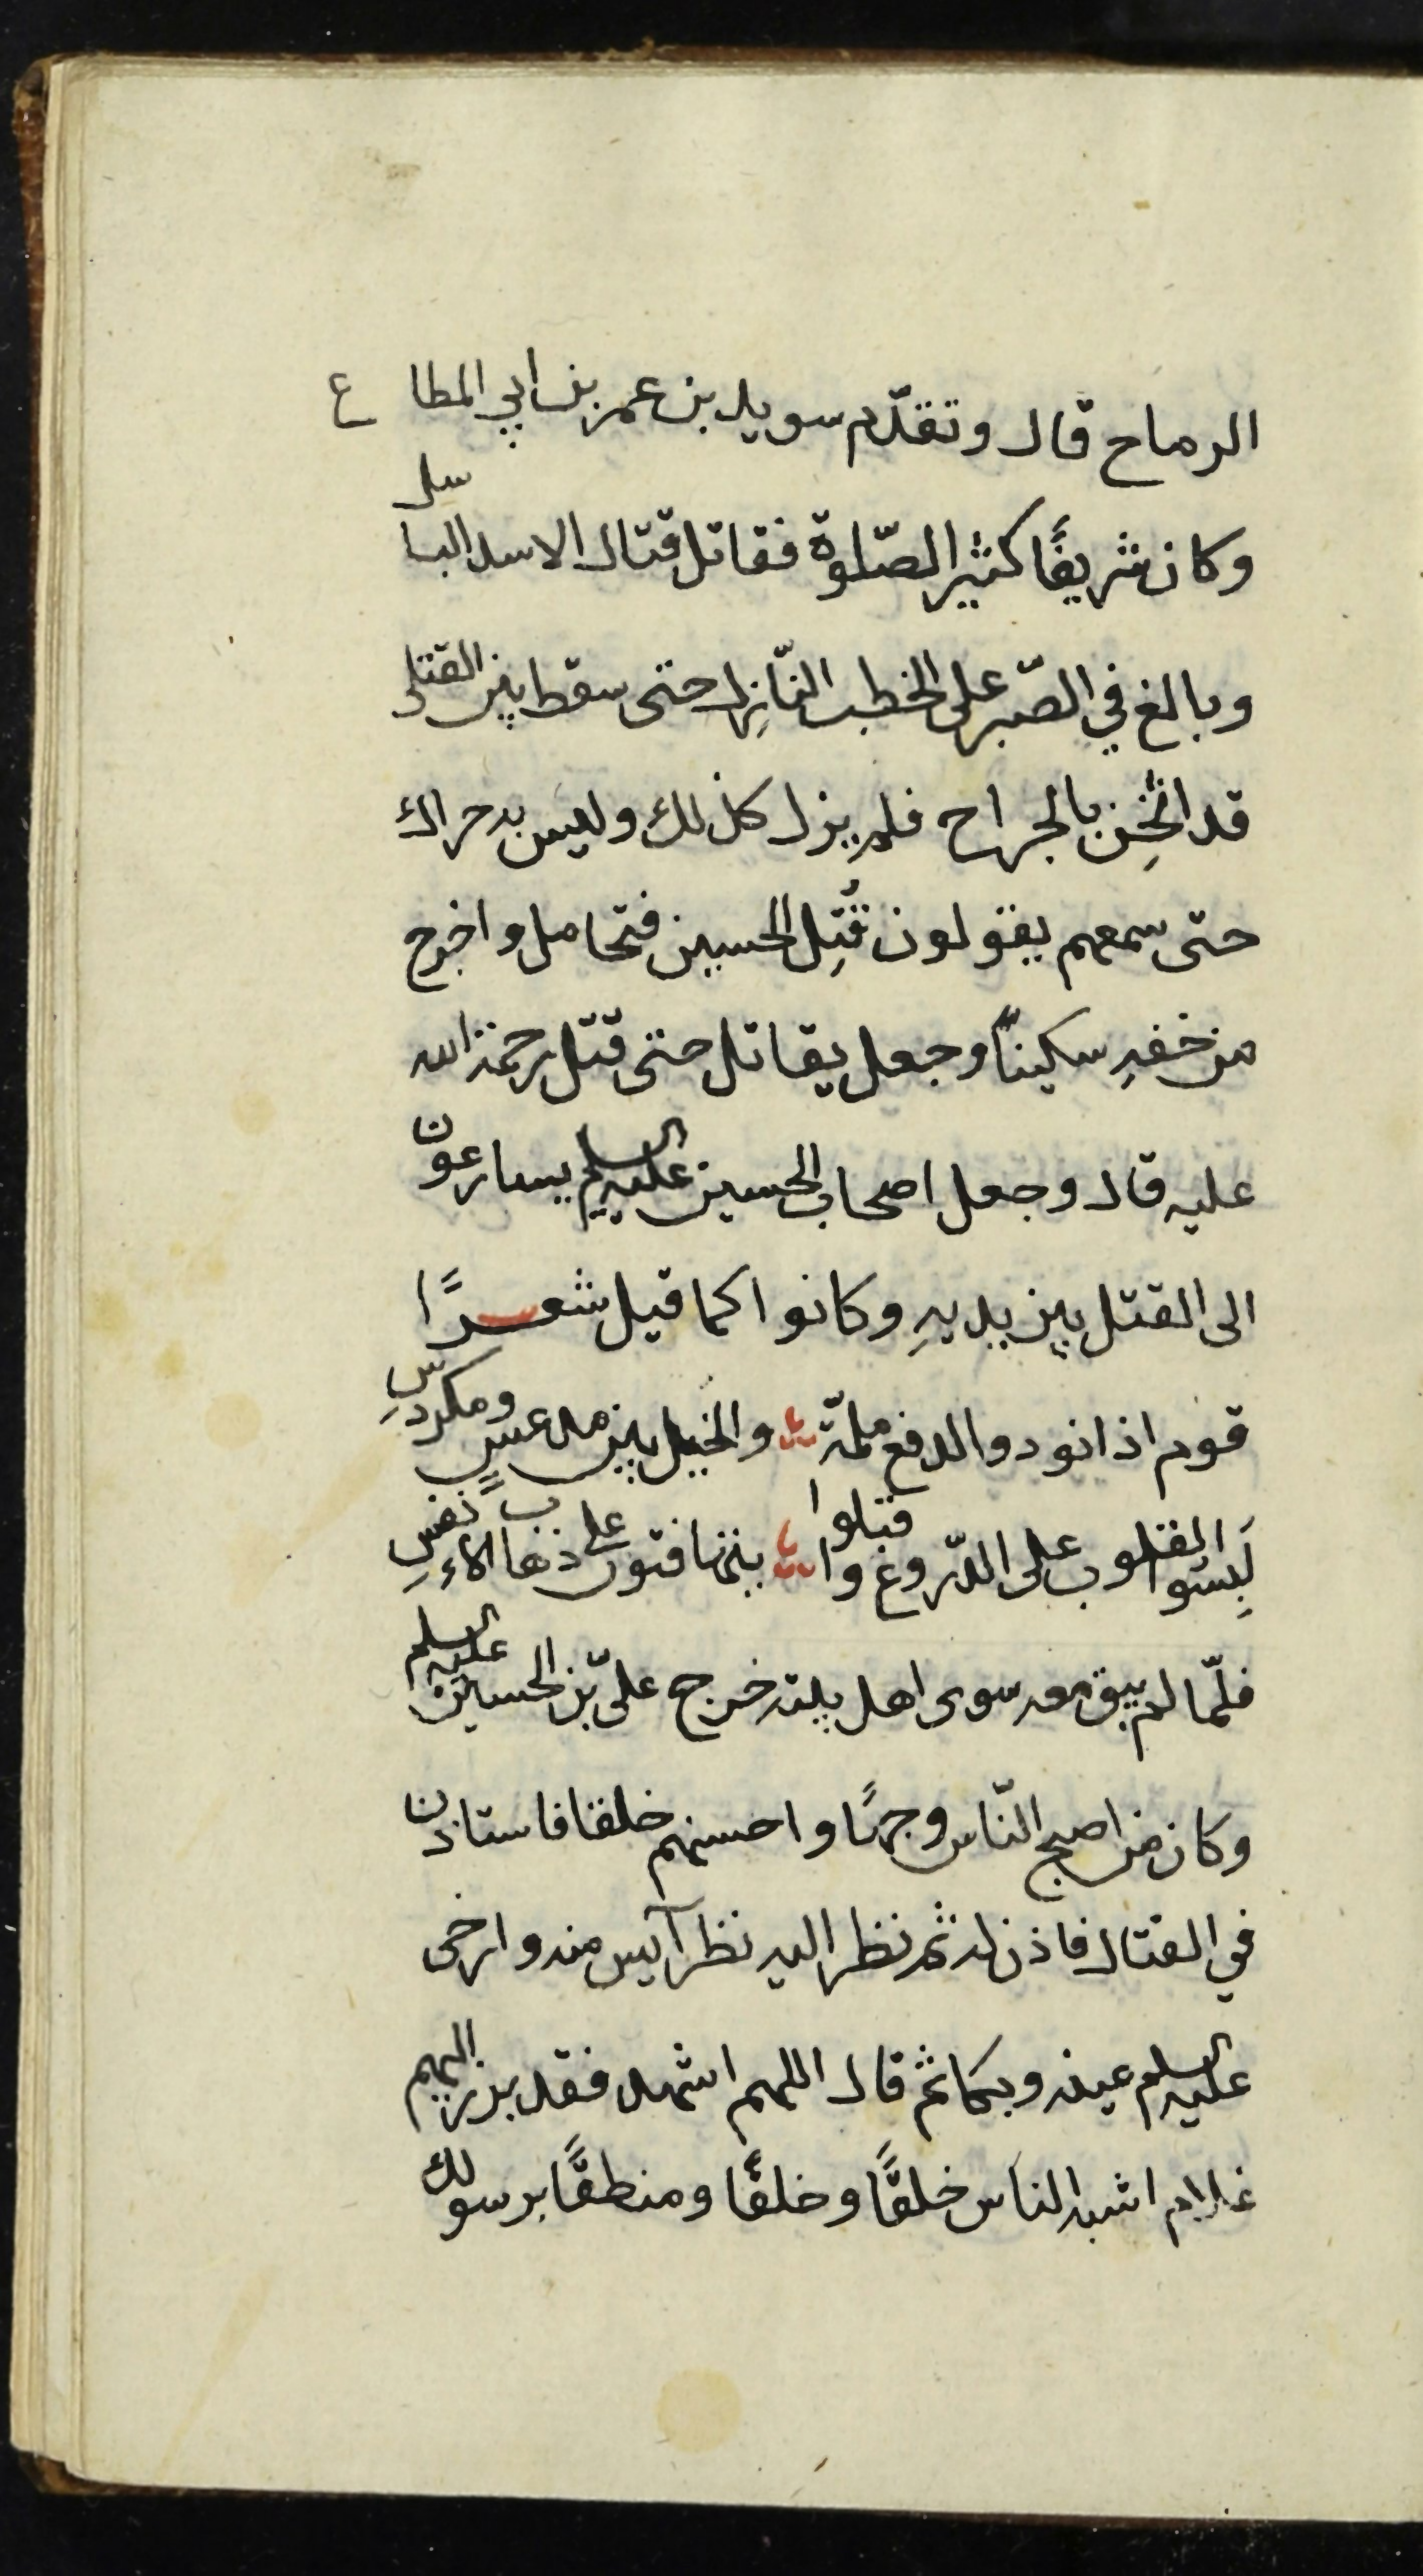 الرماح قال وتقدّم سويد بن عمر بن ابي المطاع
وكان شريفًا كثير الصّلوة فقاتل قتال الاسد الباسل
وبالغ في الصّبر على الخطب النّازِل حتى سقط بين القتلى
قد اثخِن بالجراح فلم يزل كذلك وليس به حراك
حتى سمعهم يقولون قُتِل الحسين فتحامل واخرج
من خفهِ سكينًا وجعل يقاتل حتى قتل رحمة الله
عليه قال وجعل اصحاب الحسين عليه السلم يسارعون
الى القتل بين يديهِ وكانوا كما قيل شعرًا
قوم اذا نودوا لدفع ملمّة والخيل بين مدعسٍ ومكردسِ
لَبِسَوا القلوب على الدّروع واقبلوا يتهافتون على ذهاب الاءنفسِ
فلمّا لم يبق معه سوى اهل بيته خرج علىّ بن الحسين عليه السلم
وكان من اصبح النّاس وجهًا واحسنهم خلقا فاستاذن
في القتال فاذن له ثم نظر اليه نظر آيس منه وارخى
عليه السلم عينه وبكا ثم قال اللهم اشهد فقد برز اليهم
غلام اشبه الناس خلقًا وخلقًا ومنطقًا برسولك